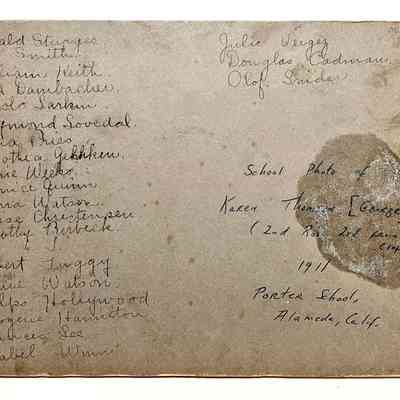 ald Sturges
Smith
liam Keith
d Dambacher
olo Larkin
ymond Lovedal
na Pries
othea Gehhken
ne Weeks
nice Quinn
na Watson
se Christensen
othy Berbeck
ert Luggy
ine Watson
elps Hollywood
ogene Hamilton
ances Lee
abel Winni
Julie Veigez
Douglas Cadman
Olof Snider
School Photo of
Karen Thomsen [George
(2nd Row 2nd
1911
Porter School,
Alameda, Calif.